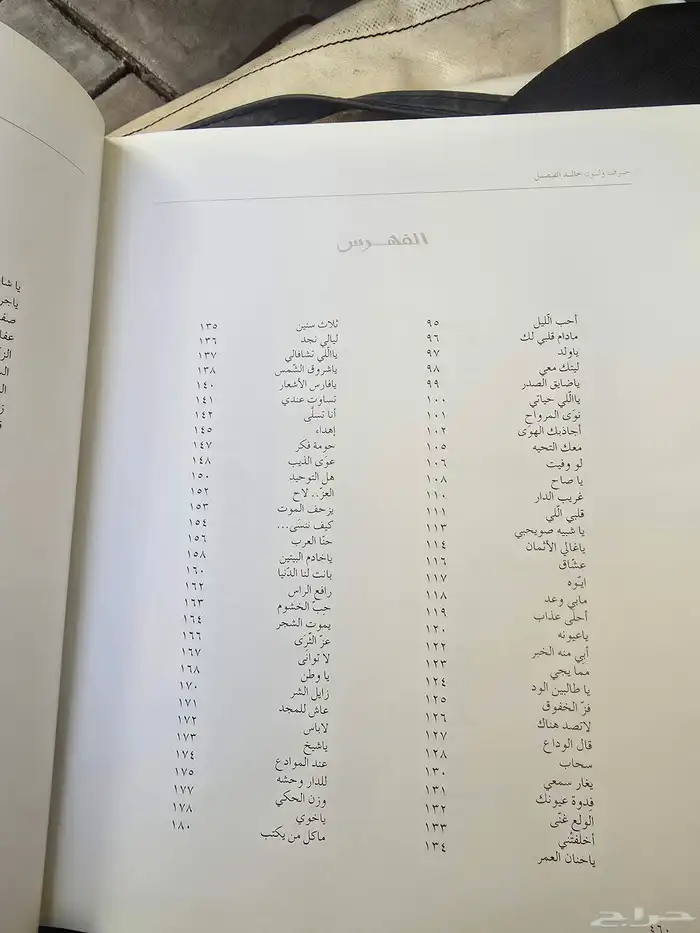 حرف ولون خالد الفيصل
الفهرس
أحب الّليل ٩٥
مادام قلبي لك ٩٦
ياولد ٩٧
ليتك معي ٩٨
ياضايق الصدر ٩٩
ياالّلي حياتي ١٠٠
نوَى المرواح ١٠١
أجاذبك الهوَى ١٠٢
معك التحيه ١٠٥
لو وفيت ١٠٦
يا صاح ١٠٨
غريب الدار ١١٠
قلبي الّلي ١١١
يا شبيه صويحبي ١١٣
ياغالي الأثمان ١١٤
عشّاق ١١٦
ايّوه ١١٧
مابي وعد ١١٨
أحلَى عذاب ١١٩
ياعيونه ١٢٠
أبي منه الخبر ١٢٢
ممّا يجي ١٢٣
يا طالبين الود ١٢٤
فزّ الخفوق ١٢٥
لاتصد هناك ١٢٦
قال الوداع ١٢٧
سحاب ١٢٨
يغار سمعي ١٣٠
فِدوة عيونك ١٣١
الولع غنّى ١٣٢
أخلفتْني ١٣٣
ياحنان العمر ١٣٤
ثلاث سنين ١٣٥
ليالي نجد ١٣٦
ياالّلي تشافالي ١٣٧
ياشروق الشّمس ١٣٨
يافارس الأشعار ١٤٠
تساوت عندي ١٤١
أنا تسلّى ١٤٢
إهداء ١٤٥
حومة فكر ١٤٧
عوَى الذيب ١٤٨
هل التوحيد ١٥٠
العزّ.. لاح ١٥٢
يزحف الموت ١٥٣
كيف ننسَى... ١٥٤
حنّا العرب ١٥٦
ياخادم البيتين ١٥٨
بانت لنا الدّنيا ١٦٠
رافع الراس ١٦٢
حبّ الخشوم ١٦٣
يموت الشجر ١٦٤
عزّ الثّرَى ١٦٦
لا توانى ١٦٧
يا وطن ١٦٨
زايل الشر ١٧٠
عاش للمجد ١٧١
لاباس ١٧٢
ياشيخ ١٧٣
عند الموادع ١٧٤
للدار وحشه ١٧٥
وزن الحكي ١٧٧
ياخوي ١٧٨
ماكل من يكتب ١٨٠
٤٦٠
حراج